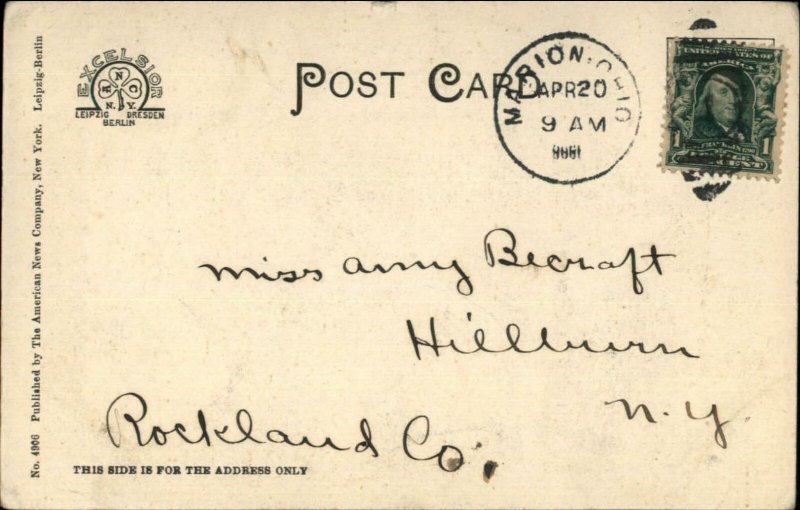 No. 4966 Published by The American News Company, New York. Leipzig-Berlin
EXCELSIOR
A N C
N.Y.
LEIPZIG DRESDEN
BERLIN
POST CARD
MARION, OHIO
APR 20
9 AM
UNITED STATES OF
AMERICA
1 1
POSTAGE
ONE CENT
miss amy Becraft
Hillburn
n.y.
Rockland Co.
THIS SIDE IS FOR THE ADDRESS ONLY